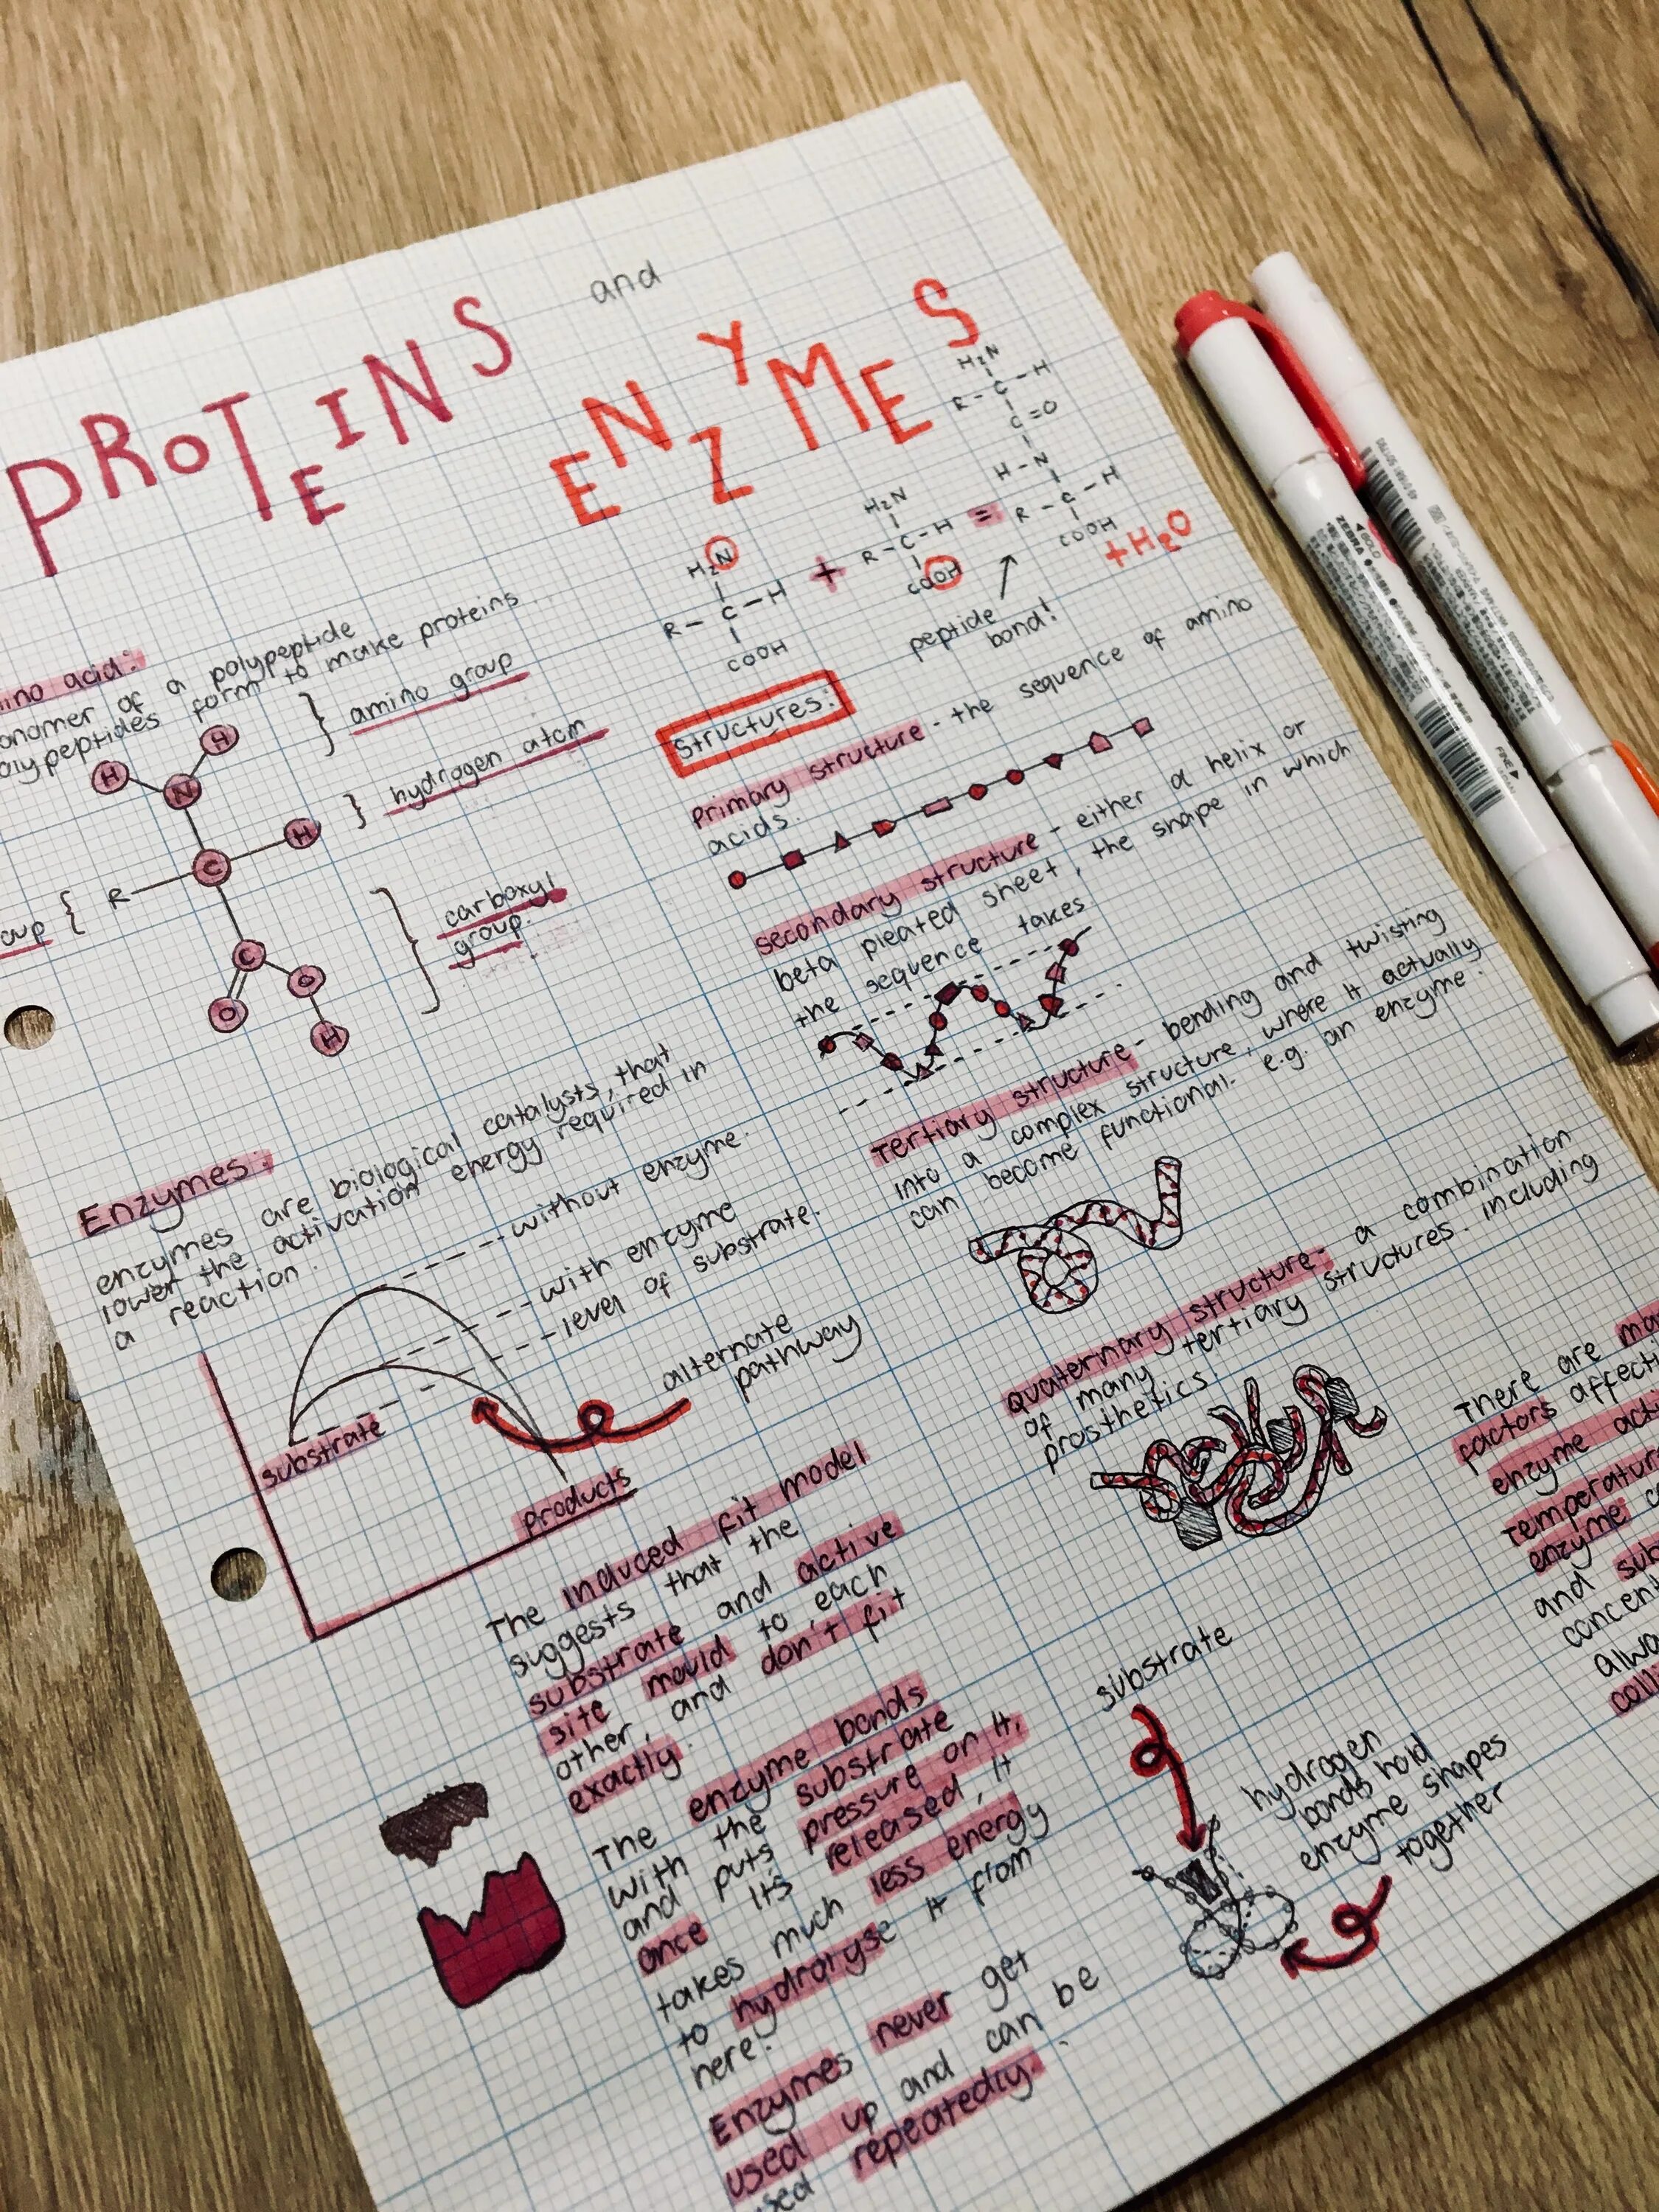 PROTEINS and ENZYMES
ino acid:
onomer of a polypeptide
olypeptides form to make proteins
H
H
N
} amino group
H
} hydrogen atom
C
R
oup {
C
O
O
H
} carboxyl
group.
H₂N
R - C - H
COOH
+
H₂N
R - C - H
COOH
=
H₂N
R - C - H
C = O
H - N
R - C - H
COOH
+ H₂O
peptide
bond!
Structures:
Primary structure - the sequence of amino
acids.
Secondary structure - either a helix or
beta pleated sheet, the shape in which
the sequence takes
Tertiary structure - bending and twisting
into a complex structure, where it actually
can become functional. e.g. an enzyme.
Quaternary structure - a combination
of many tertiary structures. including
prosthetics
Enzymes:
enzymes are biological catalysts, that
lower the activation energy required in
a reaction.
without enzyme.
with enzyme
level of substrate.
alternate
pathway
substrate
products
The induced fit model
suggests that the
substrate and active
site mould to each
other, and don't fit
exactly.
The enzyme bonds
with the substrate
and puts pressure on it,
once its released, it
takes much less energy
to hydrolyse it from
here!
Enzymes never get
used up and can be
used repeatedly.
There are ma
factors affecti
enzyme acti
Temperatur
enzyme co
and sub
concent
alwa
colli
substrate
hydrogen
bonds hold
enzyme shapes
together
ZEBRA
FINE